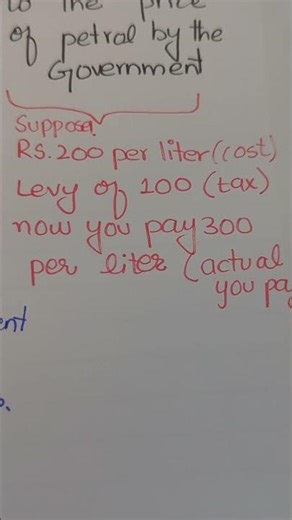 to the price
of petral by the
Government
Suppose:
RS. 200 per liter (cost)
Levy of 100 (tax)
now you pay 300
per liter (actual
you pay
ent